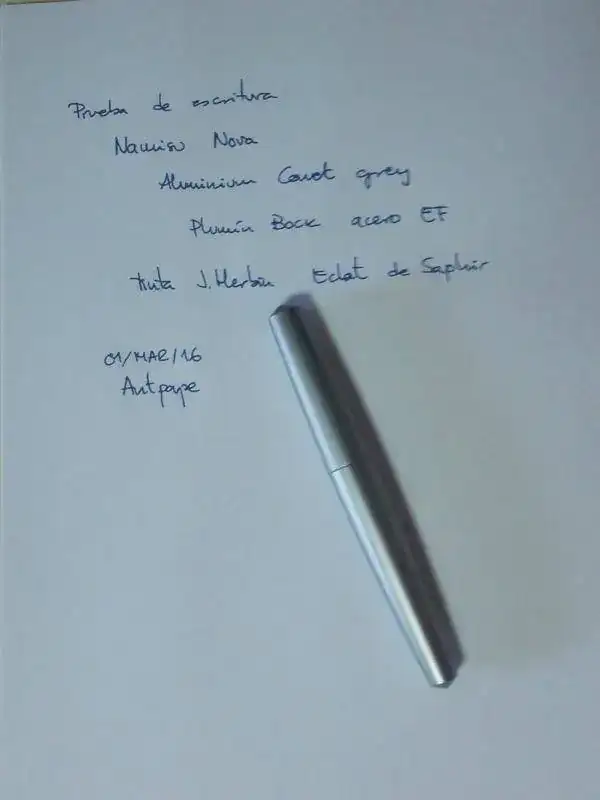 Prueba de escritura
Namisu Nova
Aluminium Comet grey
Plumín Bock acero EF
tinta J. Herbin Eclat de Saphir
01/MAR/16
Antpape